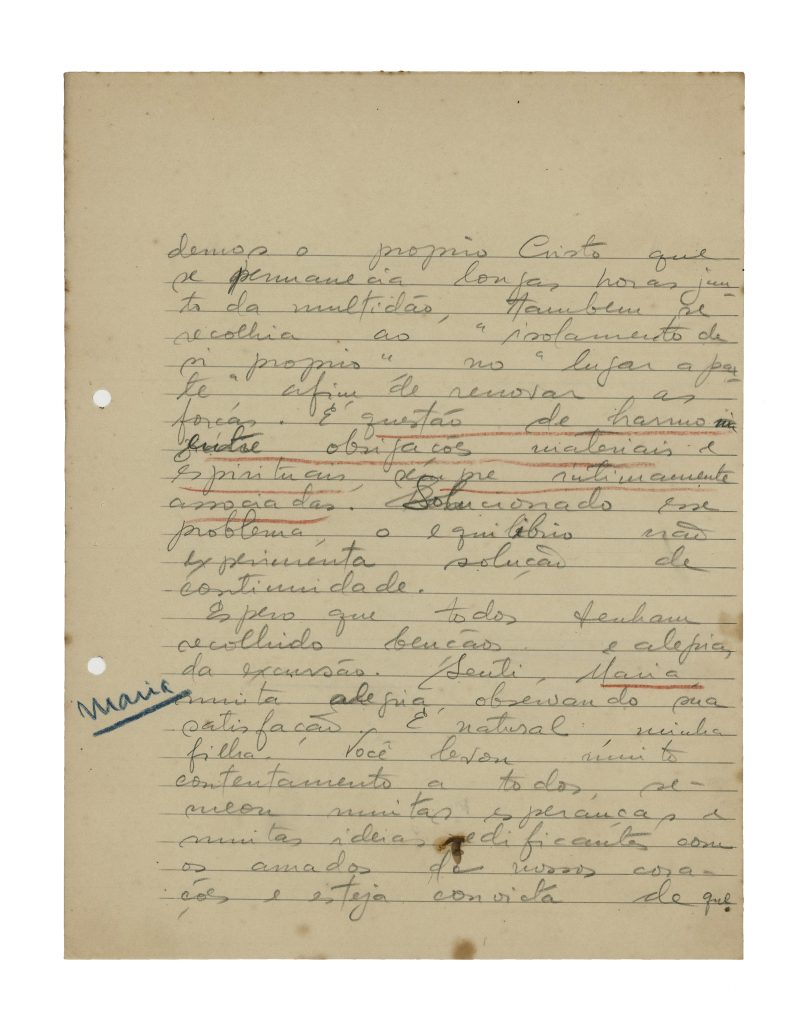 demos o proprio Cristo que
se permanecia longas horas jun-
to da multidão, tambem se
recolhia ao "isolamento de
si proprio" no "lugar a par-
te" afim de renovar as
forças. É questão de harmonia
entre obrigações materiais e
espirituais, sempre intimamente
associadas. Solucionado esse
problema, o equilibrio não
experimenta solução de
continuidade.
Espero que todos tenham
recolhido bençãos e alegrias
da excursão. Senti, Maria,
Maria
muita alegria, observando sua
satisfação. É natural minha
filha. Você levou muito
contentamento a todos, se-
meou muitas esperanças e
muitas ideias edificantes com
os amados de nossos cora-
ções e esteja convicta de que